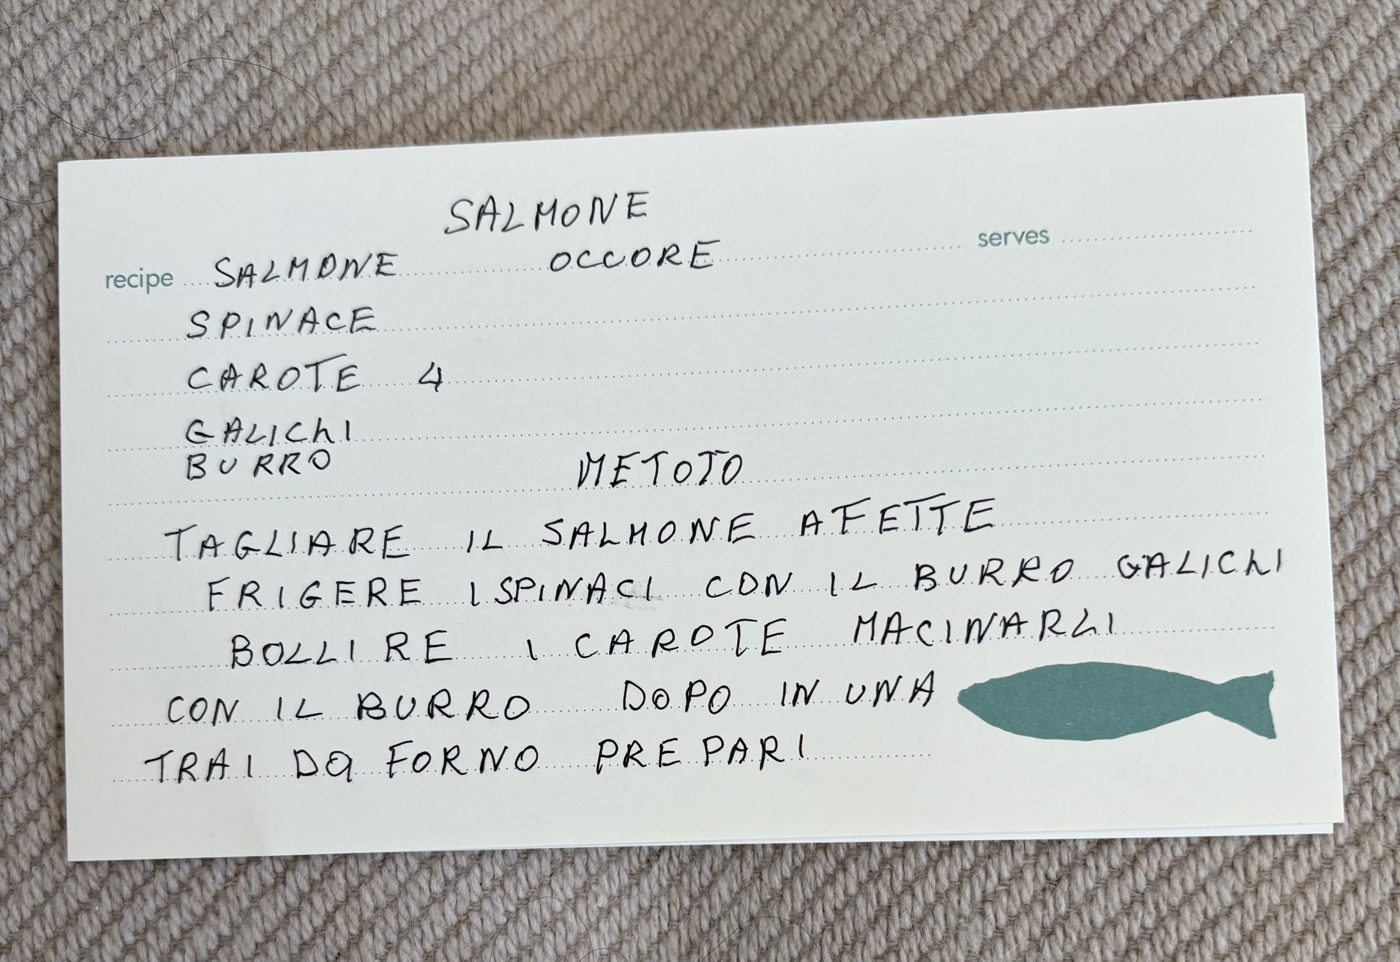 SALMONE
recipe SALMONE OCCORE serves
SPINACE
CAROTE 4
GALIChI
BURRO
METOTO
TAGLIARE IL SALMONE AFETTE
FRIGERE I SPINACI CON IL BURRO GALIChI
BOLLIRE I CAROTE MACINARLI
CON IL BURRO DOPO IN UNA
TRAI DA FORNO PREPARI